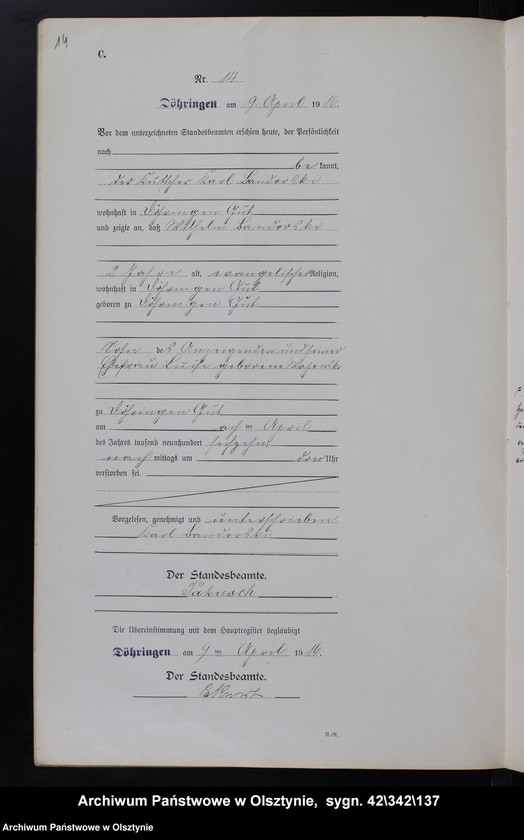 14
C.
Nr. 14
Döhringen am 9. April 1916.
Vor dem unterzeichneten Standesbeamten erschien heute, der Persönlichkeit
nach
be kannt,
der Kutscher Karl
wohnhaft in Döhringen Gut
und zeigte an, daß Wilhelm
2 Jahre alt, evangelischer Religion,
wohnhaft in Döhringen Gut
geboren zu Döhringen Gut
Sohn des Anzeigenden und seiner
Ehefrau Luise geborene
zu Döhringen Gut
am acht en April
des Jahres tausend neunhundert sechzehn
nach mittags um drei Uhr
verstorben sei.
Vorgelesen, genehmigt und unterschrieben
Karl
Der Standesbeamte.
Die Übereinstimmung mit dem Hauptregister beglaubigt
Döhringen am 9 ten April 1916.
Der Standesbeamte.
Archiwum Państwowe w Olsztynie, sygn. 42\342\137
Archiwum Państwowe w Olsztynie